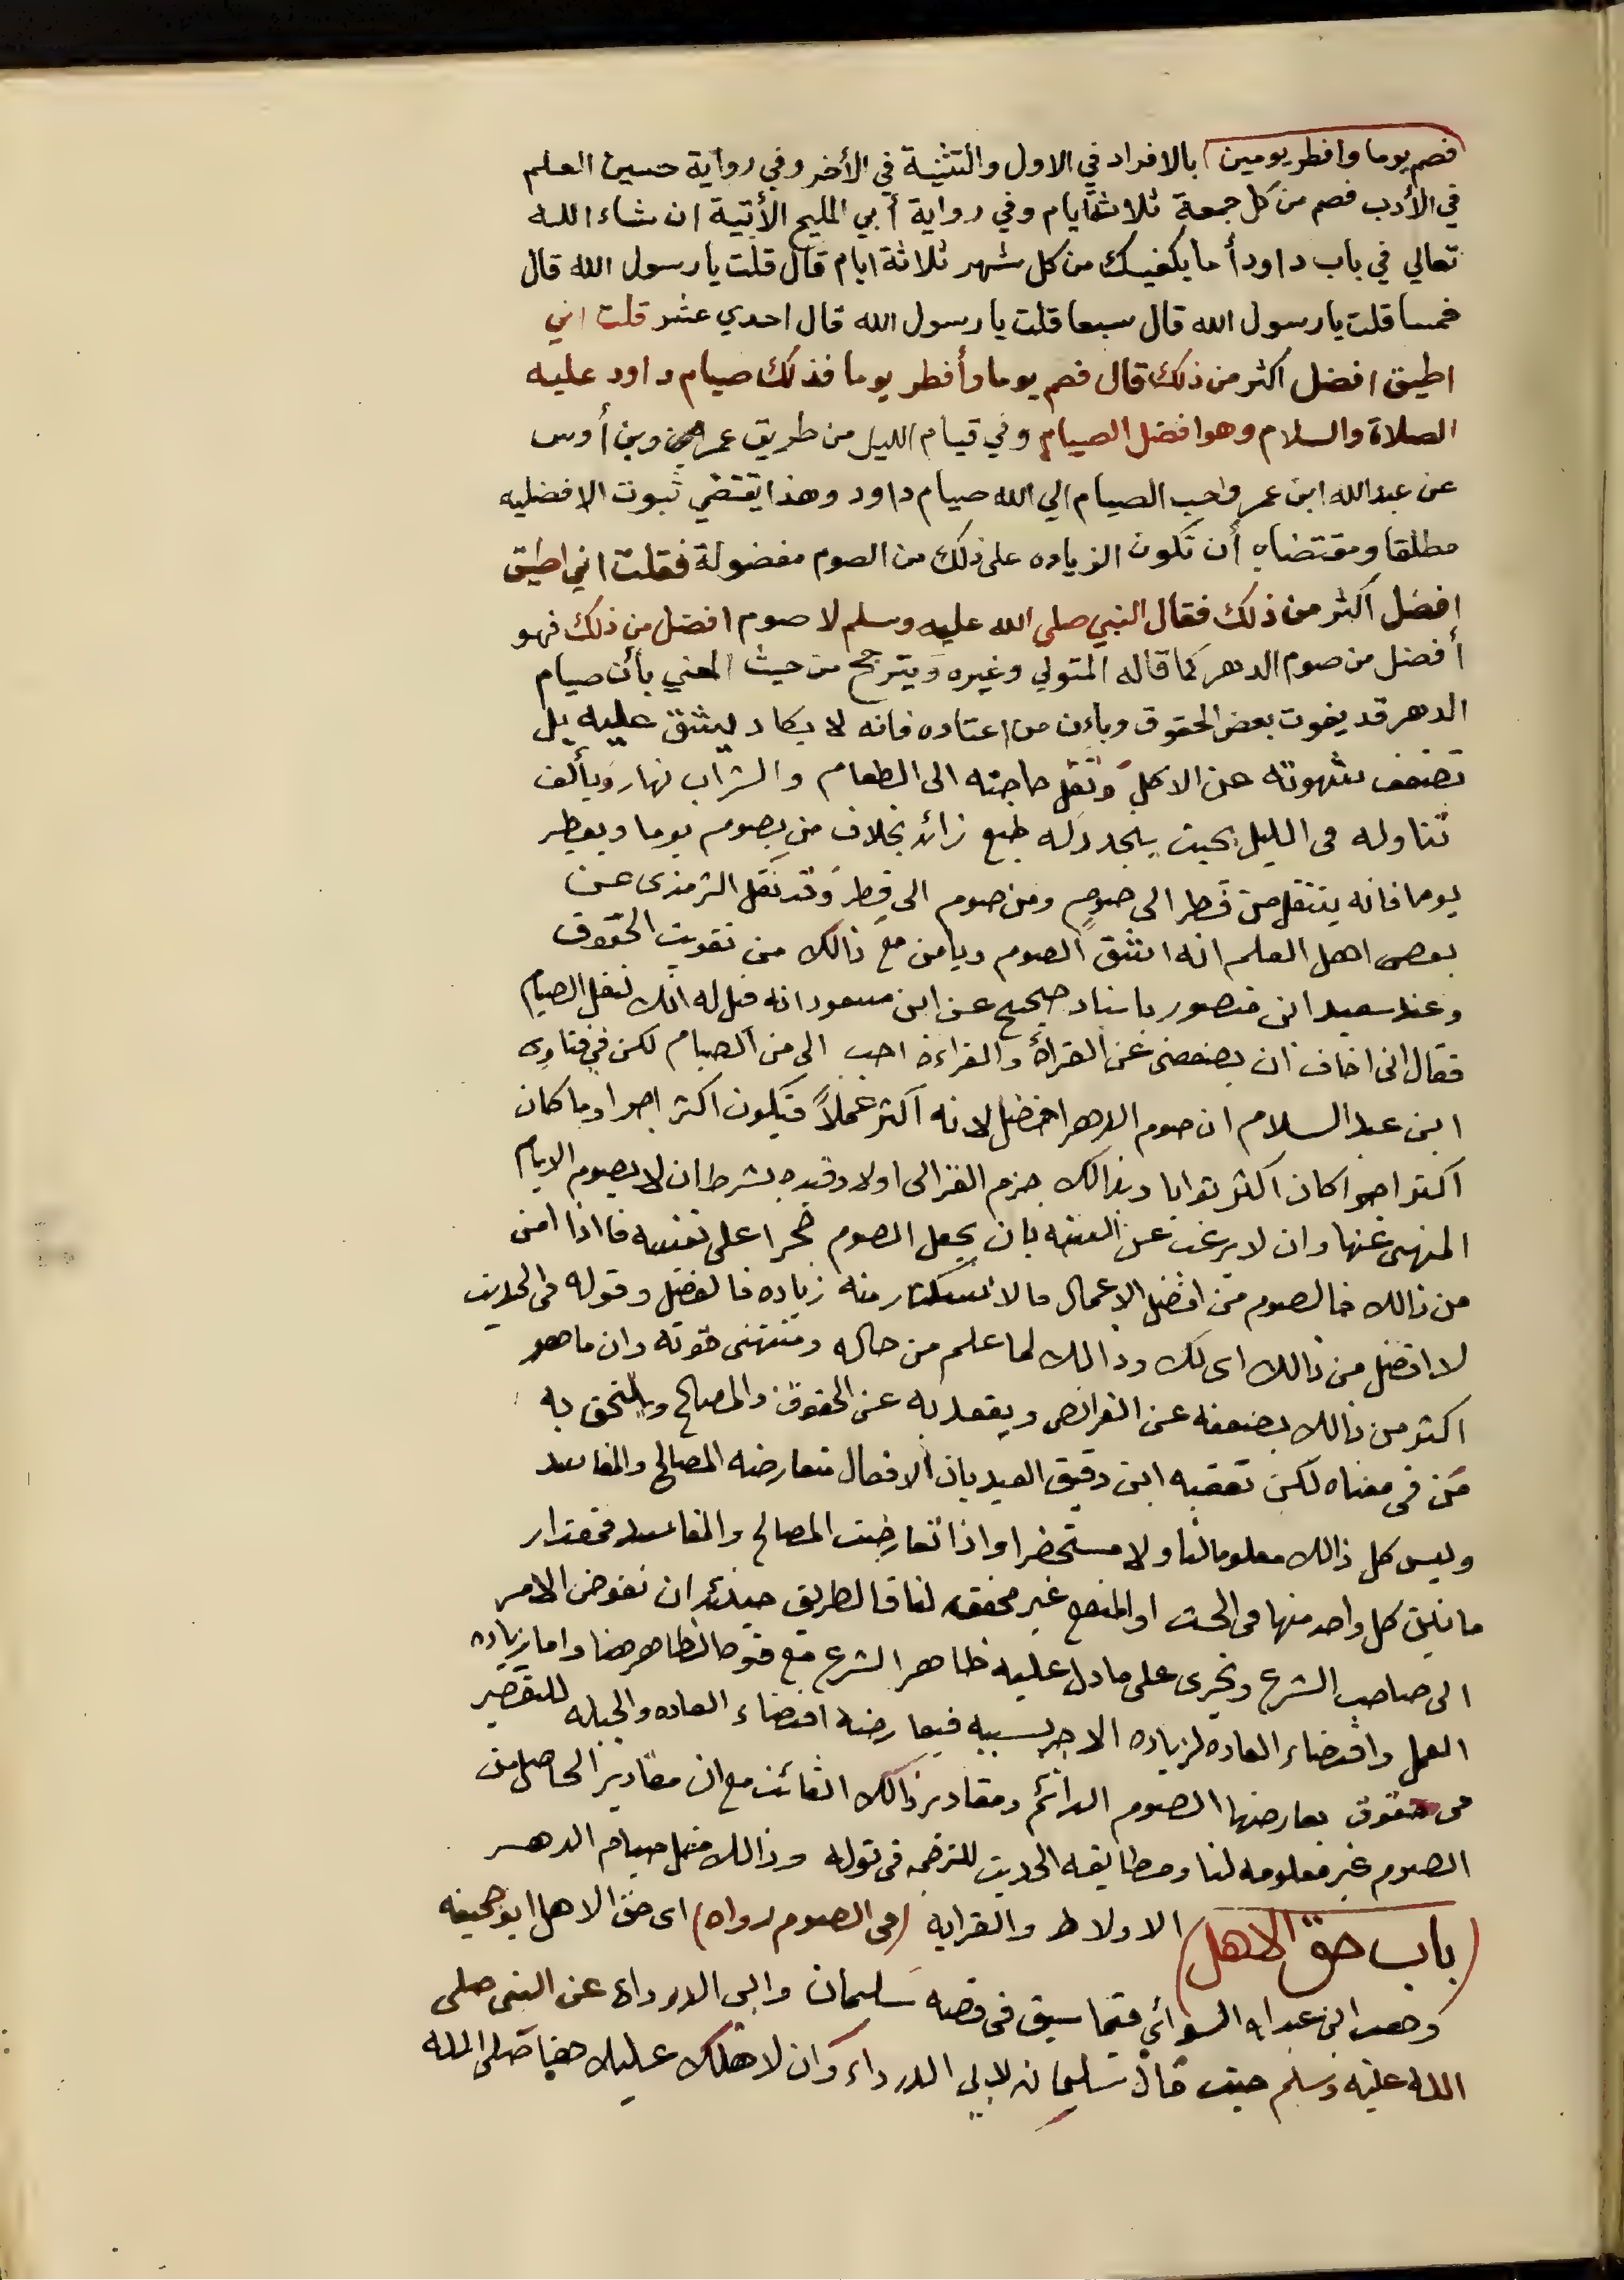 فصم يوما وافطر يومين بالافراد في الاول والتثنية في الأخر وفي رواية حسين العلم
في الأدب فصم من كل جمعة ثلاثة ايام وفي رواية أبي المليح الأتية ان شاء الله
تعالي في باب داود أما يكفيك من كل شهر ثلاثة ايام قال قلت يا رسول الله قال
خمسا قلت يا رسول الله قال سبعا قلت يا رسول الله قال احدي عشر قلت اني
اطيق افضل اكثر من ذلك قال فصم يوما وأفطر يوما فذلك صيام داود عليه
الصلاة والسلام وهو افضل الصيام وفي قيام الليل من طريق عمرو بن أوس
عن عبد الله ابن عمر واحب الصيام الي الله صيام داود وهذا يقتضي ثبوت الافضليه
مطلقا ومقتضاه أن تكون الزياده على ذلك من الصوم مفضولة فقلت اني اطيق
افضل اكثر من ذلك فقال النبي صلى الله عليه وسلم لا صوم افضل من ذلك فهو
أفضل من صوم الدهر كما قاله المتولي وغيره ويترجح من حيث المعني بأن صيام
الدهر قد يفوت بعض الحقوق وبان من اعتاده فانه لا يكاد يشق عليه بل
تضعف شهوته عن الاكل وتقل حاجته الى الطعام والشراب نهار ويألف
تناوله فى الليل بحيث يتجدد له طبع زائد بخلاف من يصوم يوما ويفطر
يوما فانه ينتقل من فطر الى صوم ومن صوم الى فطر وقد نقل الترمذى عن
بعض اهل العلم انه اشق الصوم ويامن مع ذالك من تفويت الحقوق
وعند سعيد ابن منصور باسناد صحيح عن ابن مسعود انه قيل له انك لتقل الصيام
فقال انى اخاف ان يضعفنى عن القراة والقراءة احب الى من الصيام لكن في فتاوى
ابن عبد السلام ان صوم الدهر افضل لانه اكثر عملاً فيكون اكثر اجرا وما كان
اكثر اجرا كان اكثر ثوابا وبذالك جزم الغزالى اولا وقيده بشرط ان لا يصوم الايام
المنهى عنها وان لا يرغب عن السنه بان يجعل الصوم حجرا على نفسه فاذا امن
من ذالك فالصوم من افضل الاعمال فالاستكثار منه زياده فالفضل وقوله فى الحديث
لا افضل من ذالك اى لك وذالك لما علم من حاله ومنتهى قوته وان ما هو
اكثر من ذالك يضعفه عن الفرائض ويقعد به عن الحقوق والمصالح ويلتحق به
من فى معناه لكن تعقبه ابن دقيق العيد بان الافعال متعارضه المصالح والمفاسد
وليس كل ذالك معلوما لنا ولا مستحضرا واذا تعارضت المصالح والمفاسد فمقدار
ما تاثير كل واحد منها فى الحث او المنع غير محقق لنا فالطريق حينئذ ان نفوض الامر
الى صاحب الشرع ونجرى على ما دل عليه ظاهر الشرع مع قوه الظاهر هنا واما زياده
العمل واقتضاء العاده لزياده الاجر بسببه فيعارضه اقتضاء العاده والجبله للتقصير
فى حقوق يعارضها الصوم الدائم ومقادير ذالك الفائت مع ان مقادير الحاصل من
الصوم غير معلومه لنا ومطابقه الحديث للترجمه فى قوله وذالك مثل صيام الدهر
(باب حق الاهل) الاولاد والقرابه (فى الصوم رواه) اى حق الاهل ابو جحيفه
وهب ابن عبد الله السوائي فيما سبق فى قصه سليمان وابى الدرداء عن النبى صلى
الله عليه وسلم حيث قال سليمان لابى الدرداء وان لاهلك عليك حقا صلى الله